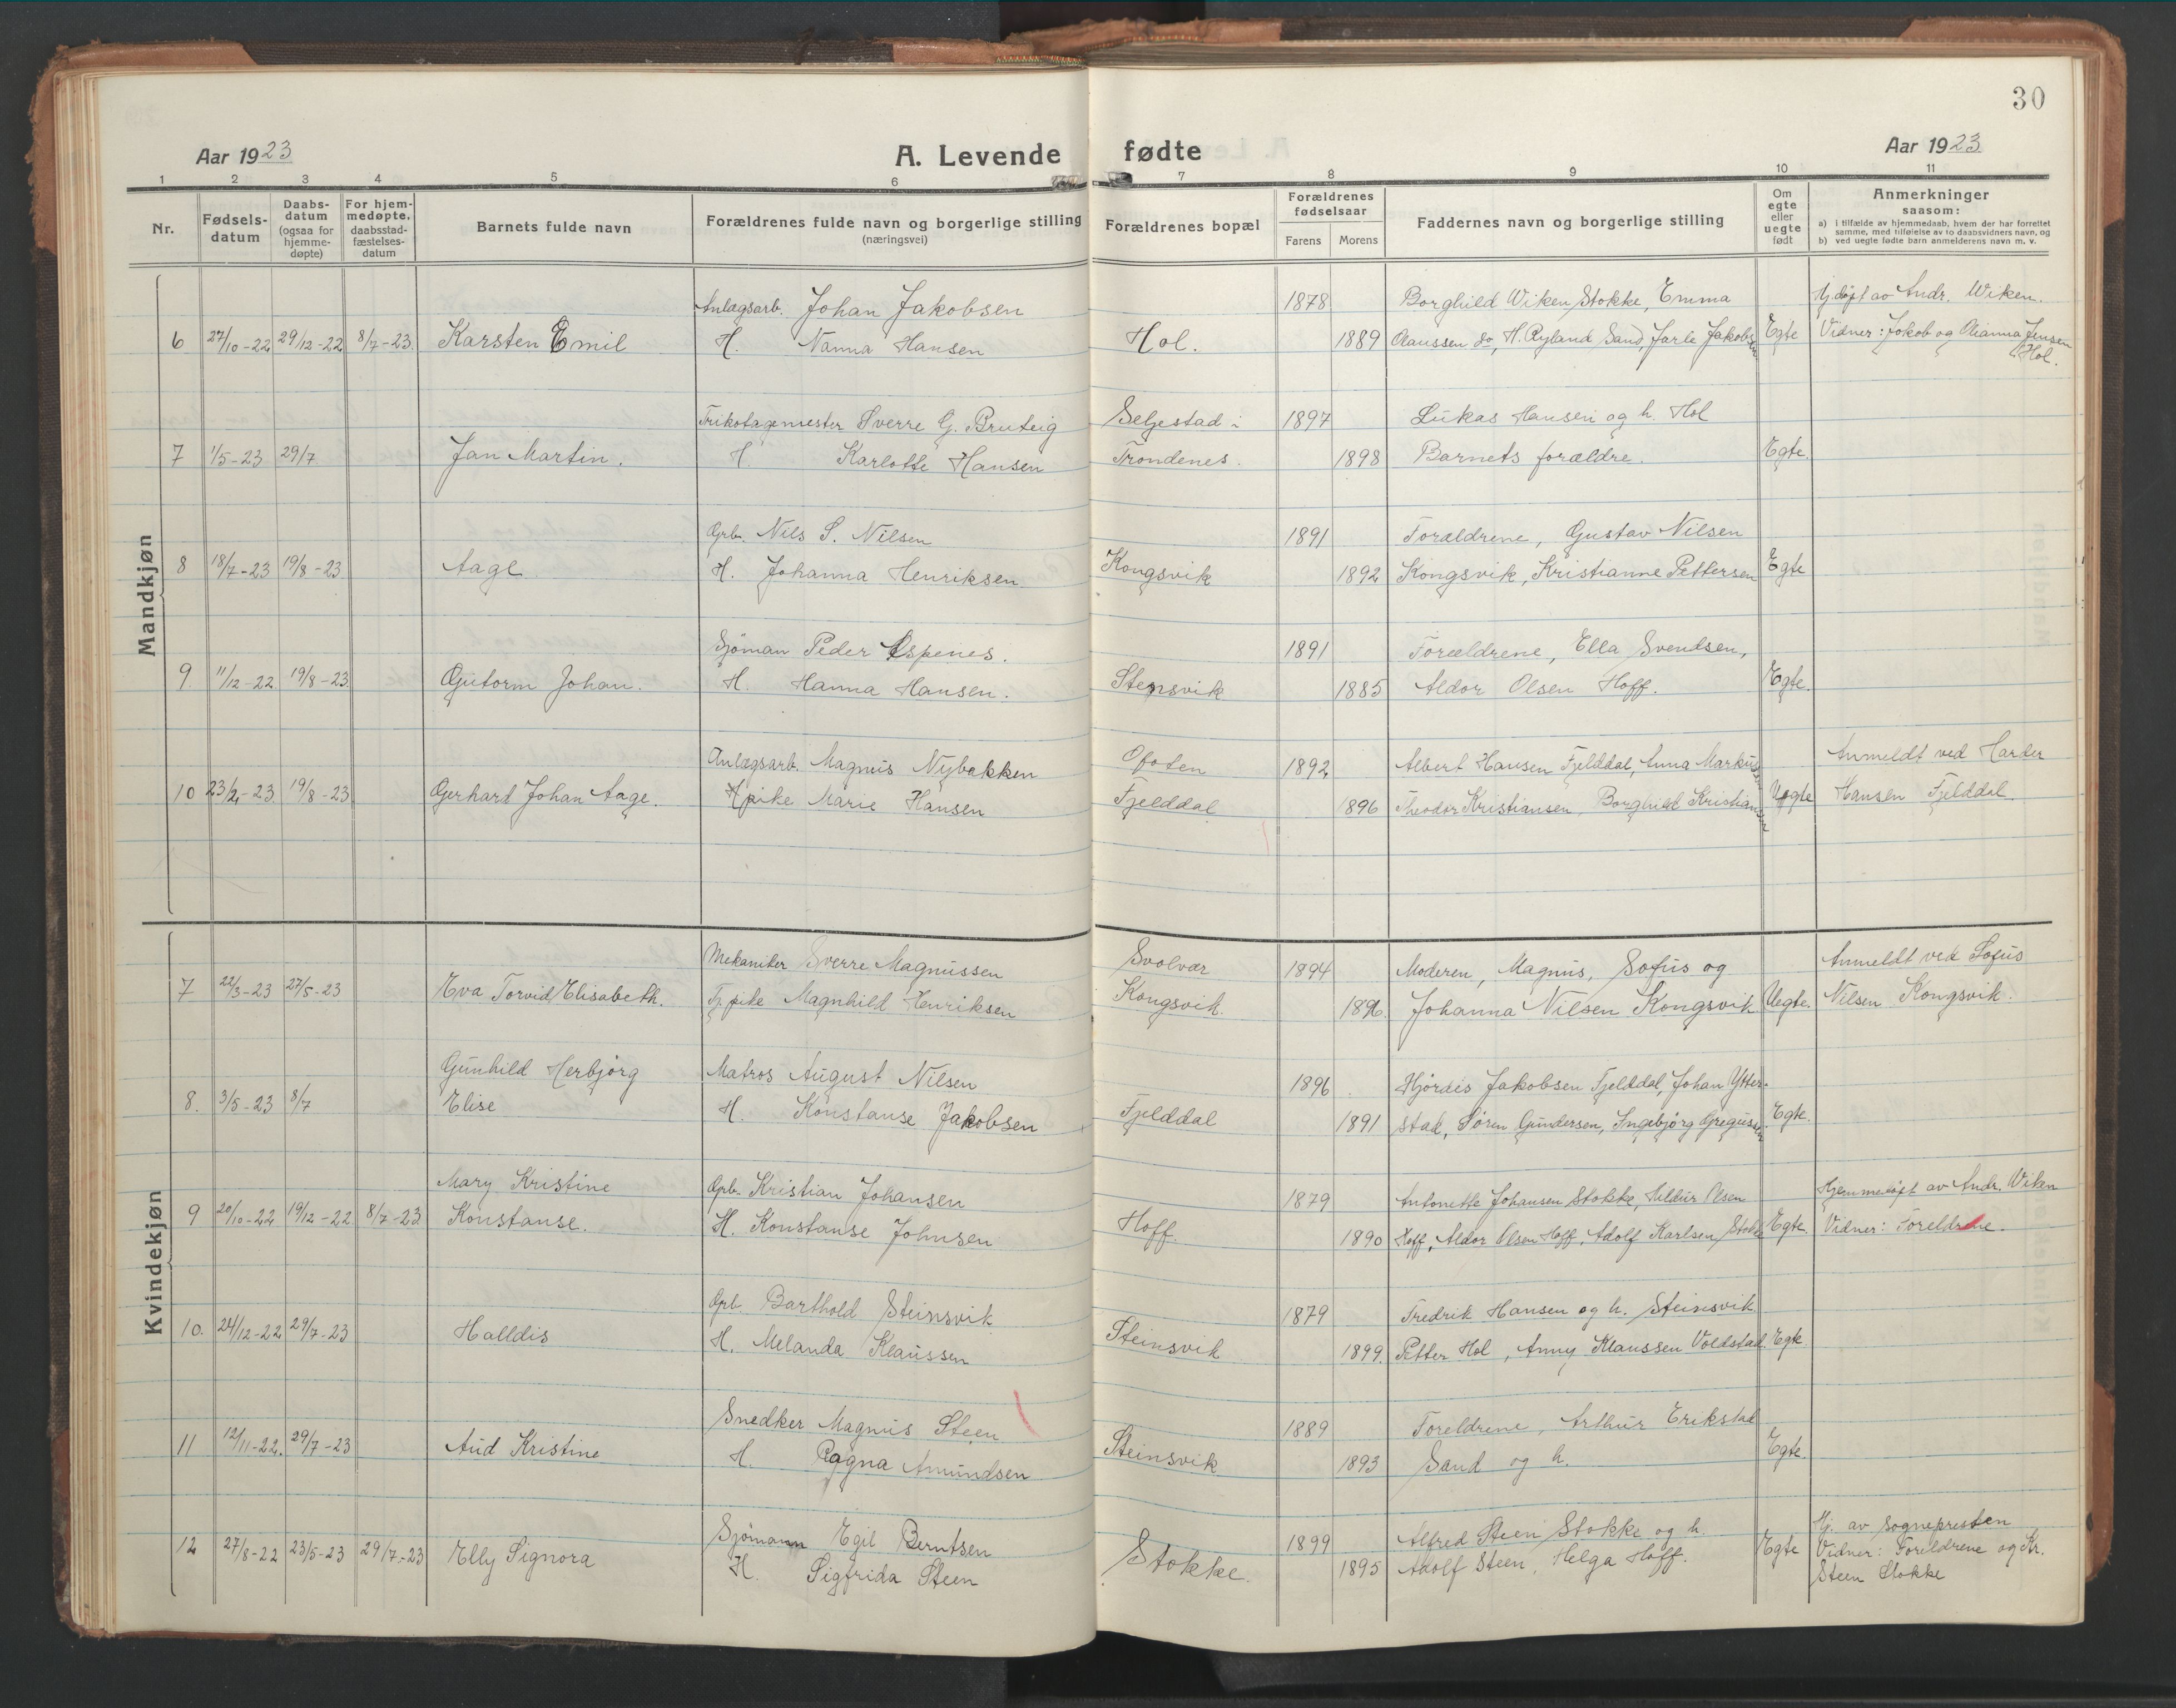 30
Aar 1923 A. Levende fødte Aar 1923
1 2 3 4 5 6 7 8 9 10 11
Nr. Fødselsdatum Daabsdatum (ogsaa for hjemmedøpte) For hjemmedøpte. daabsstadfæstelsesdatum Barnets fulde navn Forældrenes fulde navn og borgerlige stilling (næringsvei) Forældrenes bopæl Forældrenes fødselsaar Farens Morens Faddernes navn og borgerlige stilling Om egte eller uegte født Anmerkninger saasom: a) i tilfælde av hjemmedaab, hvem der har forrettet samme, med tilføielse av to daabsvidners navn, og b) ved uegte fødte barn anmelderens navn m. v.
Mandkjøn
Anlægsarb. Johan Jakobsen 1878 Borghild Wiken Stokke, Emma Hj.døpt av Andr. Wiken.
6 27/10-22 29/12-22 8/7-23. Karsten Emil H. Nanna Hansen Hol. 1889 Olaussen do, H. Ryland Sand, Jarle Jakobsen Egte Vidner: Jakob og Olianna Jensen
Hol.
Trikotagemester Sverre G. Bruteig Seljestad i 1897 Lukas Hansen og h. Hol
7 1/5-23 29/7 Jan Martin. H. Karlotte Hansen Trondenes. 1898 Barnets forældre. Egte.
Grb. Nils S. Nilsen 1891 Forældrene, Gustav Nilsen
8 18/7-23 19/8-23 Aage H. Johanna Henriksen Kongsvik 1892 Kongsvik, Kristianne Pettersen Egte
Sjöman Peder Espenes. 1891 Forældrene, Ella Svendsen,
9. 11/12-22 19/8-23 Gutorm Johan. H. Hanna Hansen. Stensvik 1885 Aldor Olsen Hoff. Egte.
Anlægsarb. Magnus Nybakken Ofoten 1892 Albert Hansen Fjelddal, Anna Markussen Anmeldt ved Harder
10 23/2-23 19/8-23 Gerhard Johan Aage. pike Marie Hansen Fjelddal 1896 Theodor Kristiansen, Borghild Kristiansen Uegte Hansen Fjelddal.
Kvindekjøn
Mekaniker Sverre Magnussen Svolvær 1894 Moderen, Magnus, Sofus og Anmeldt ved Sofus
7 22/3-23 27/5-23 Eva Torvid Elisabeth. Tj.pike Magnhild Henriksen Kongsvik. 1896. Johanna Nilsen Kongsvik Uegte. Nilsen Kongsvik.
Gunhild Herbjörg Matros August Nilsen 1896 Hjördis Jakobsen Fjelddal, Johan Ytter-
8. 3/5-23 8/7 Elise H. Konstanse Jakobsen Fjelddal 1891 stad, Søren Gundersen, Ingebjørg Gregussen Egte.
Mary Kristine Grb. Kristian Johansen 1879 Antonette Johansen Stokke, Hildur Olsen Hjemmedøpt av Andr. Wiken
9 20/10-22 19/12-22 8/7-23 Konstanse. H. Konstanse Johnsen Hoff. 1890 Hoff, Aldor Olsen Hoff, Adolf Karlsen Stokke Egte. Vidner: Foreldrene.
Grb. Barthold Steinsvik 1879 Fredrik Hansen og h. Steinsvik
10. 24/12-22 29/7-23 Halldis H. Melanda Klaussen Steinsvik 1899. Petter Hol, Anny Klaussen Voldstad. Egte
Snedker Magnus Steen 1889 Foreldrene, Arthur Erikstad
11 12/11-22. 29/7-23 Aud Kristine H. Ragna Amundsen Steinsvik 1893 Sand og h. Egte.
Sjömann Egil Berntsen 1899 Alfred Steen Stokke og h. Hj. av sognepresten
12 27/8-22 23/5-23 29/7-23 Elly Signora H. Sigfrida Steen Stokke. 1895 Adolf Steen, Helga Hoff. Egte Vidner: Foreldrene og Kr.
Steen Stokke